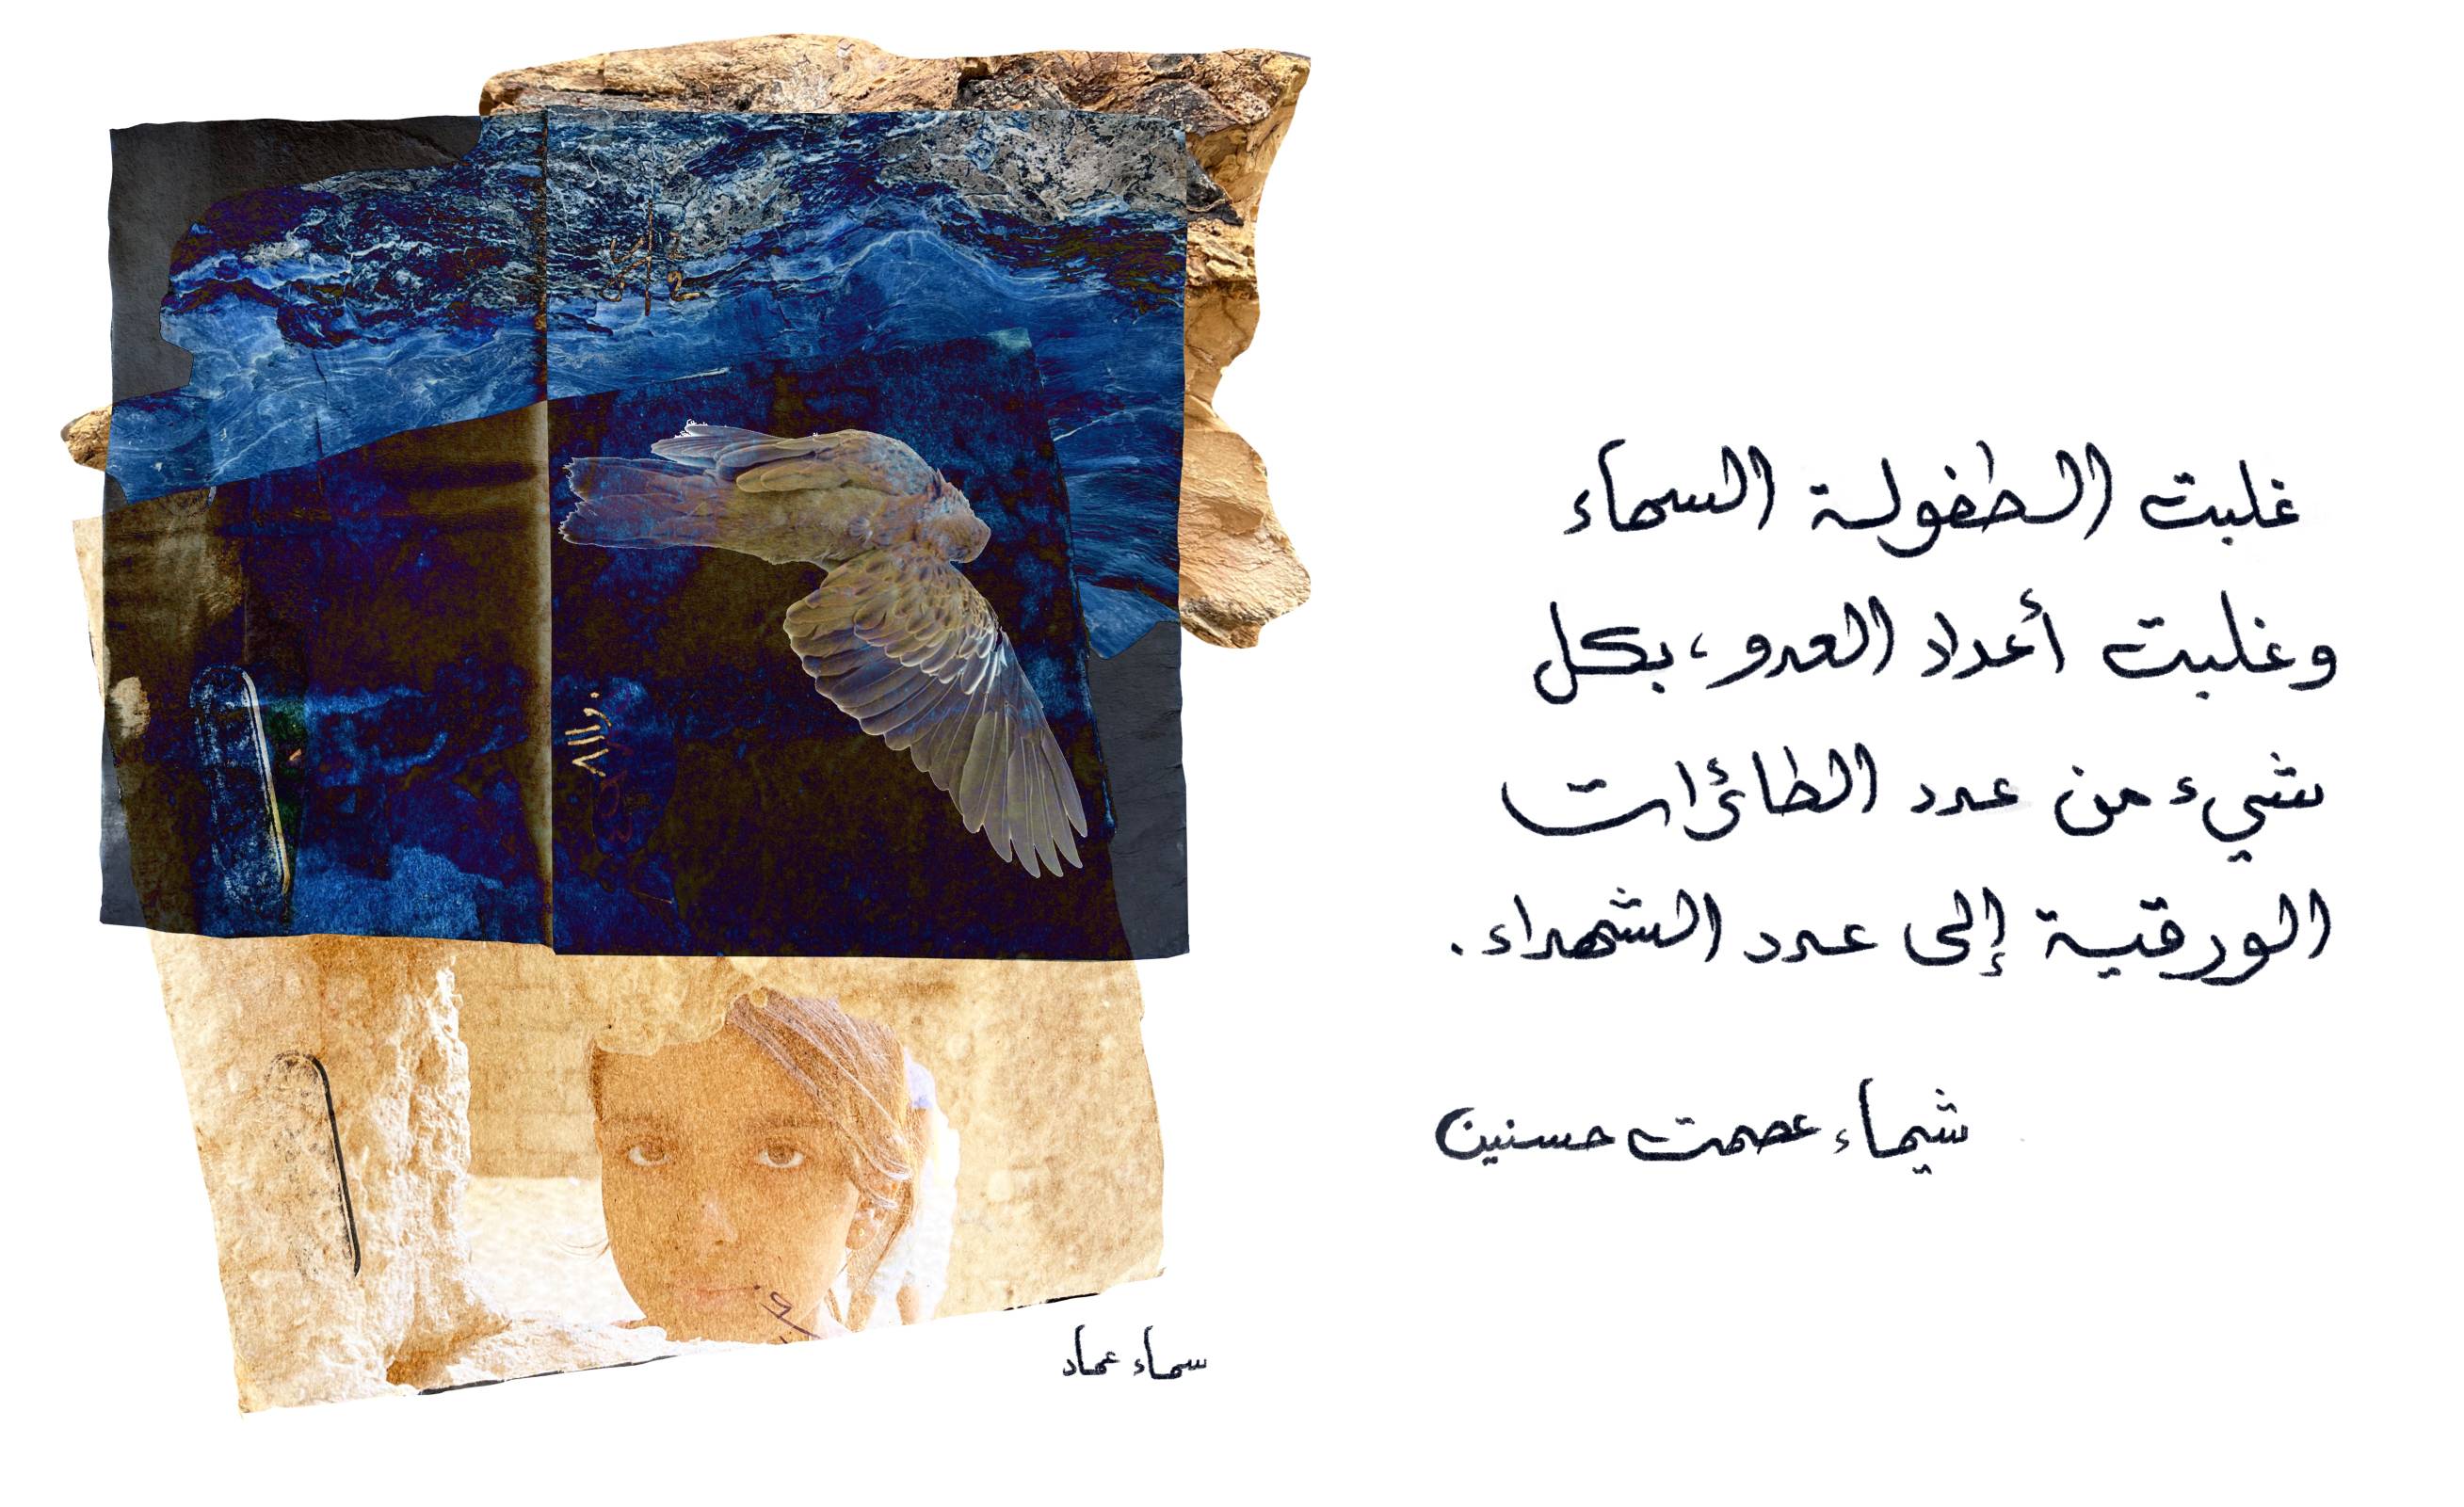 غلبت الطفولة السماء
وغلبت أعداد العدو، بكل
شيء من عدد الطائرات
الورقية إلى عدد الشهداء.
شيماء عصمت حسنين
سماء عماد